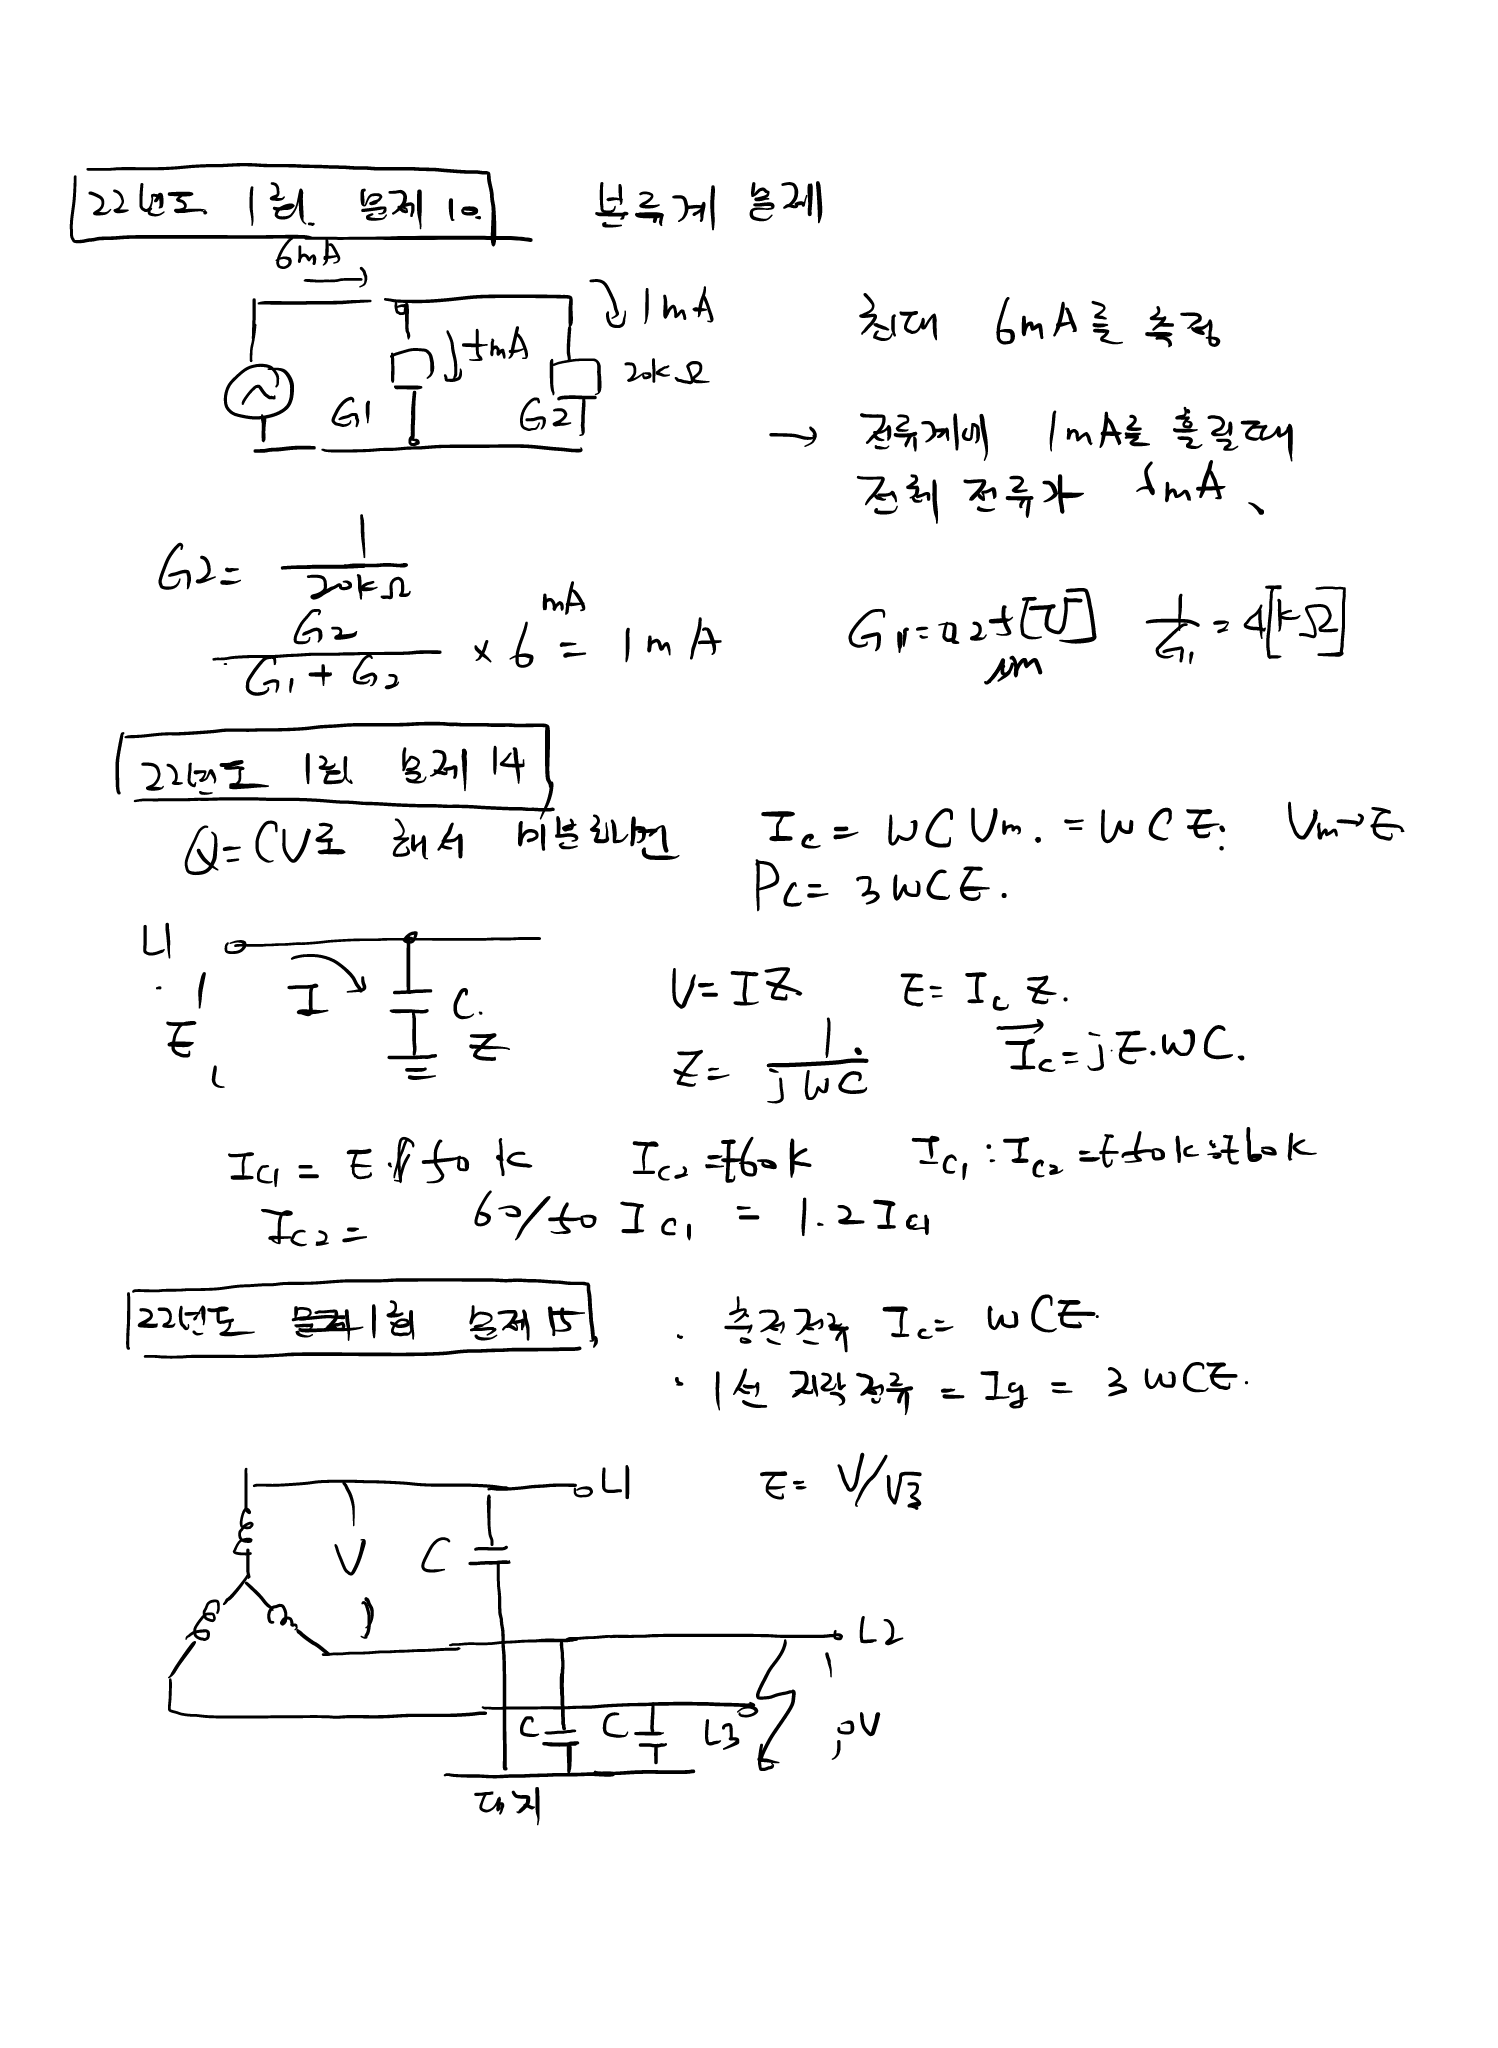 22년도 1회 문제 10 분류계 문제
6mA
1mA
5mA
20kΩ
G1 G2
최대 6mA를 측정
→ 전류계에 1mA를 흘릴때
전체 전류가 6mA
G2 = 1/20kΩ
G2/(G1+G2) × 6mA = 1mA
G1 = 0.25[℧] 1/G1 = 4[kΩ]
22년도 1회 문제 14
Q=CV로 해서 미분하면 Ic = WCVm. = WCE. Vm→E
Pc = 3WCE.
L1
I C. Z
E
V = IZ E = Ic Z.
Z = 1/jWC Ic = jE.WC.
Ic1 = E·50k Ic2 = E60k Ic1 : Ic2 = E50k : E60k
Ic2 = 60/50 Ic1 = 1.2Ic1
22년도 1회 문제 15
· 충전전류 Ic = WCE.
· 1선 지락전류 = Ig = 3WCE.
E = V/√3
L1
V C
L2
C C L3 0V
대지